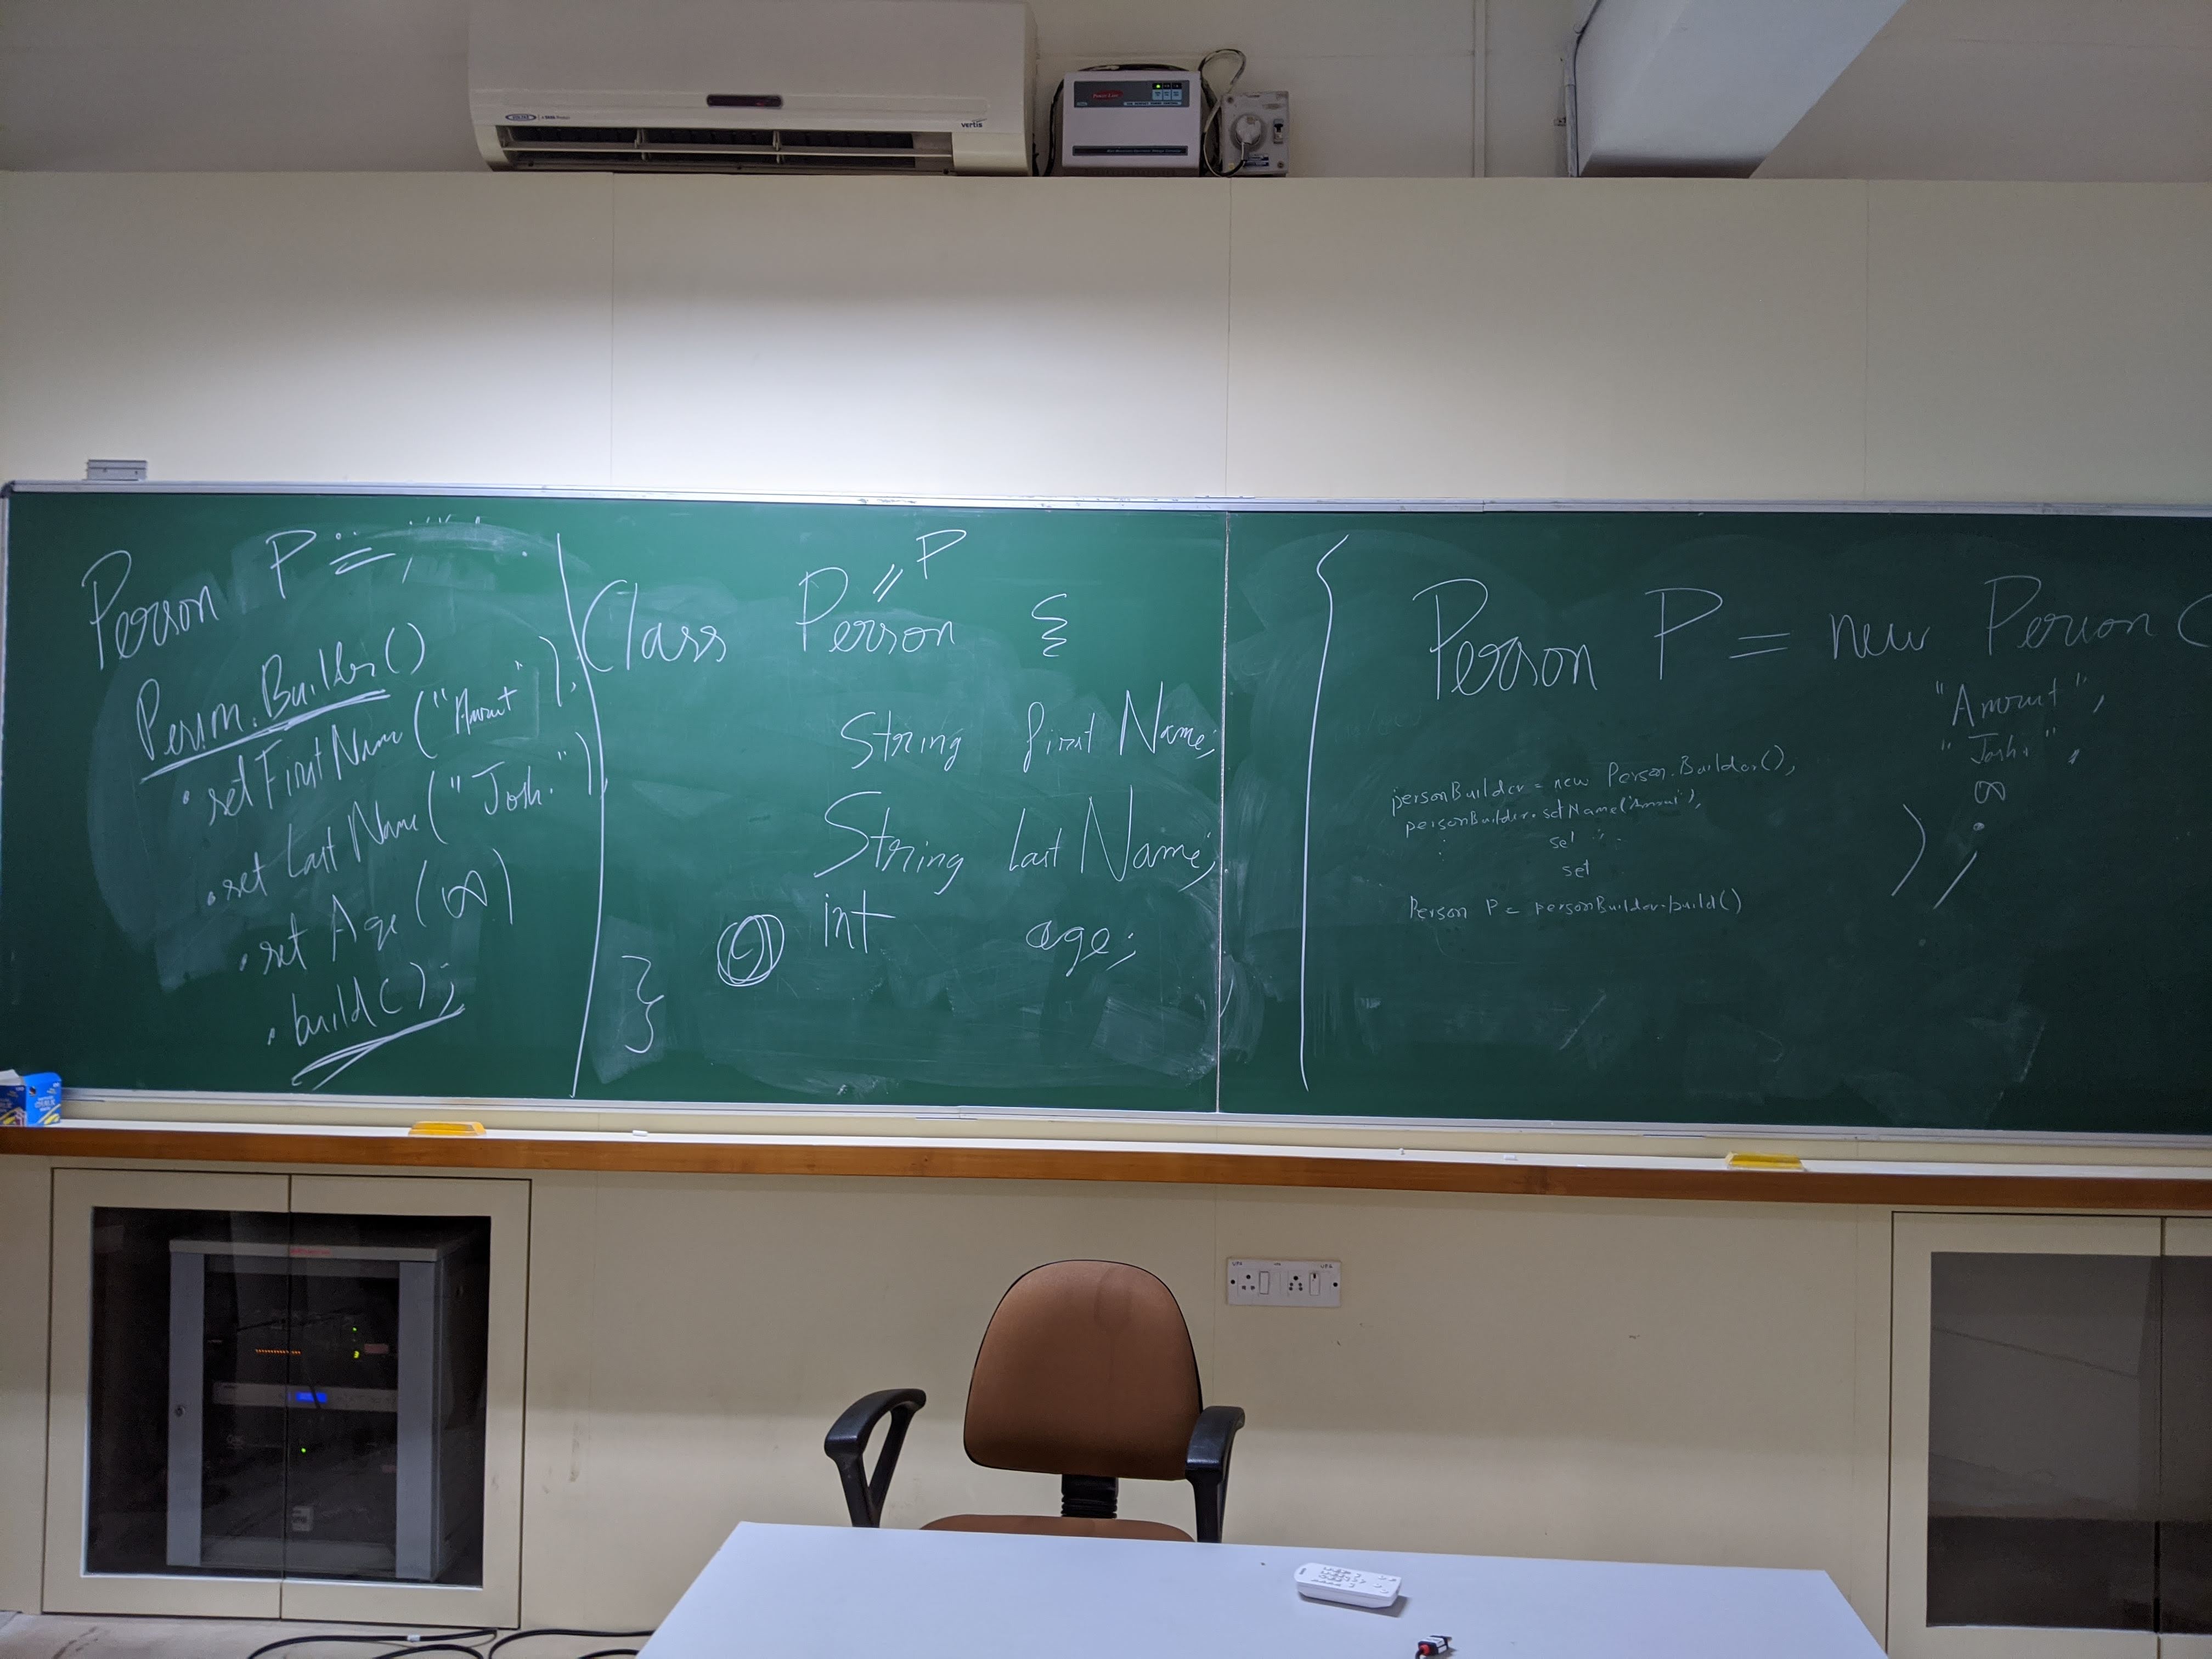 vertis
Person P =
Person.Builder()
.setFirstName("Amrut")
.set Last Name("Joshi")
.set Age(∞)
.build();
P
Class Person {
String first Name;
String Last Name;
int age;
}
Person P = new Person(
"Amrut",
"Joshi",
∞
);
personBuilder = new Person.Builder();
personBuilder.setName("Amrut");
set
set
Person P = personBuilder.build()